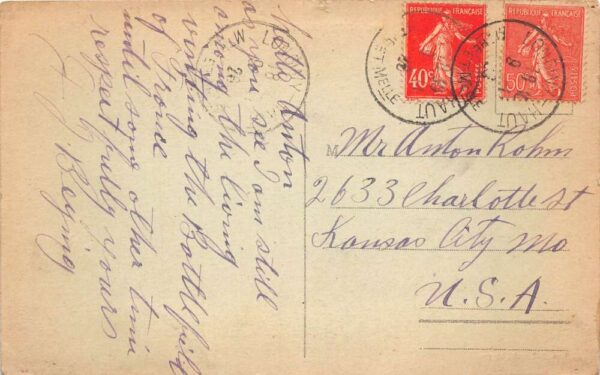 Hello Anton
as you see I am still
among the living
visiting the Battlefield
of France
until some other time
respectfully yours
Mr Anton Kohm
2633 Charlotte st
Kansas City Mo
U.S.A.
REPUBLIQUE FRANÇAISE
40c
REPUBLIQUE FRANÇAISE
50c